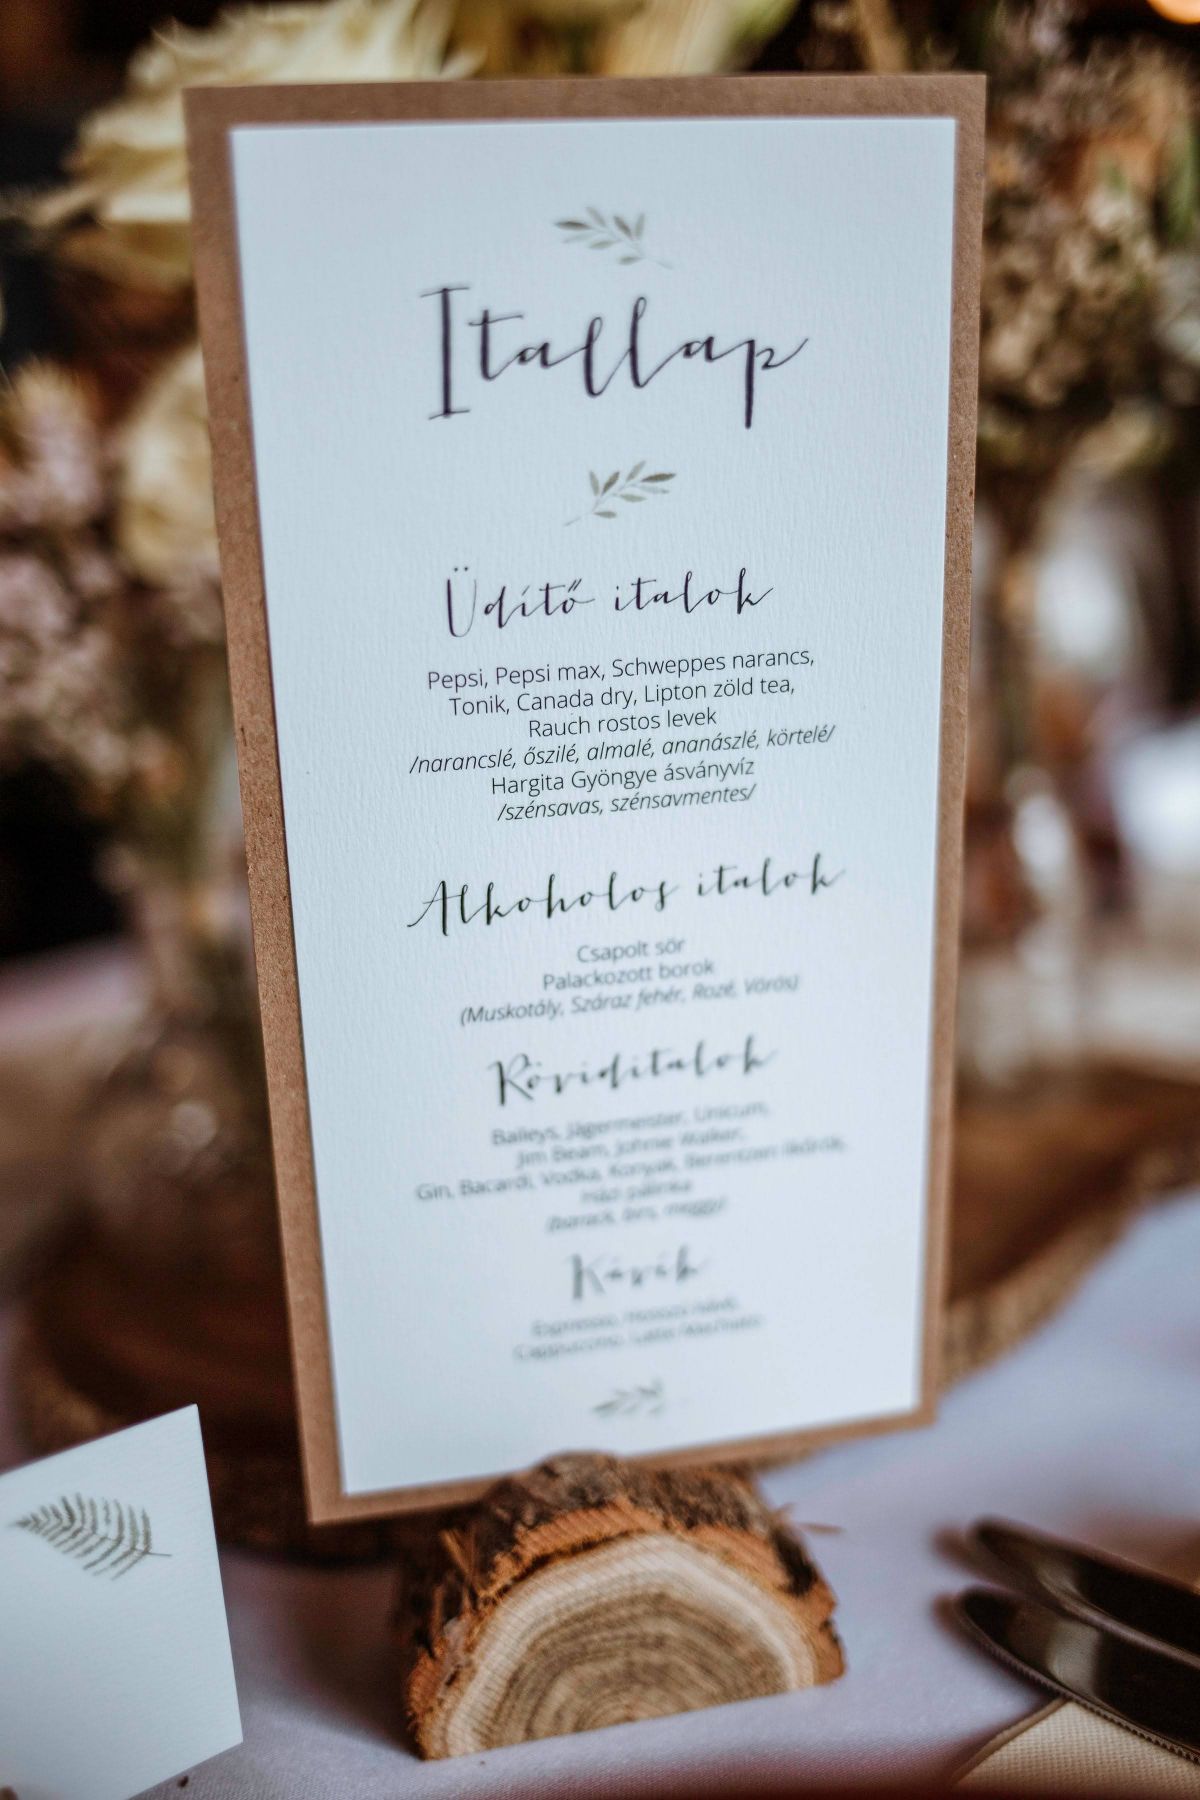 Itallap
Üdítő italok
Pepsi, Pepsi max, Schweppes narancs,
Tonik, Canada dry, Lipton zöld tea,
Rauch rostos levek
/narancslé, őszilé, almalé, ananászlé, körtelé/
Hargita Gyöngye ásványvíz
/szénsavas, szénsavmentes/
Alkoholos italok
Csapolt sör
Palackozott borok
(Muskotály, Száraz fehér, Rozé, Vörös)
Röviditalok
Baileys, Jägermeister, Unicum,
Jim Beam, Johnie Walkar,
Gin, Bacardi, Vodka, Konyak, Berentzen likőrök,
Házi pálinka
Kávék
Espresso, Hosszú kávé,
Cappuccino, Latte Machiato